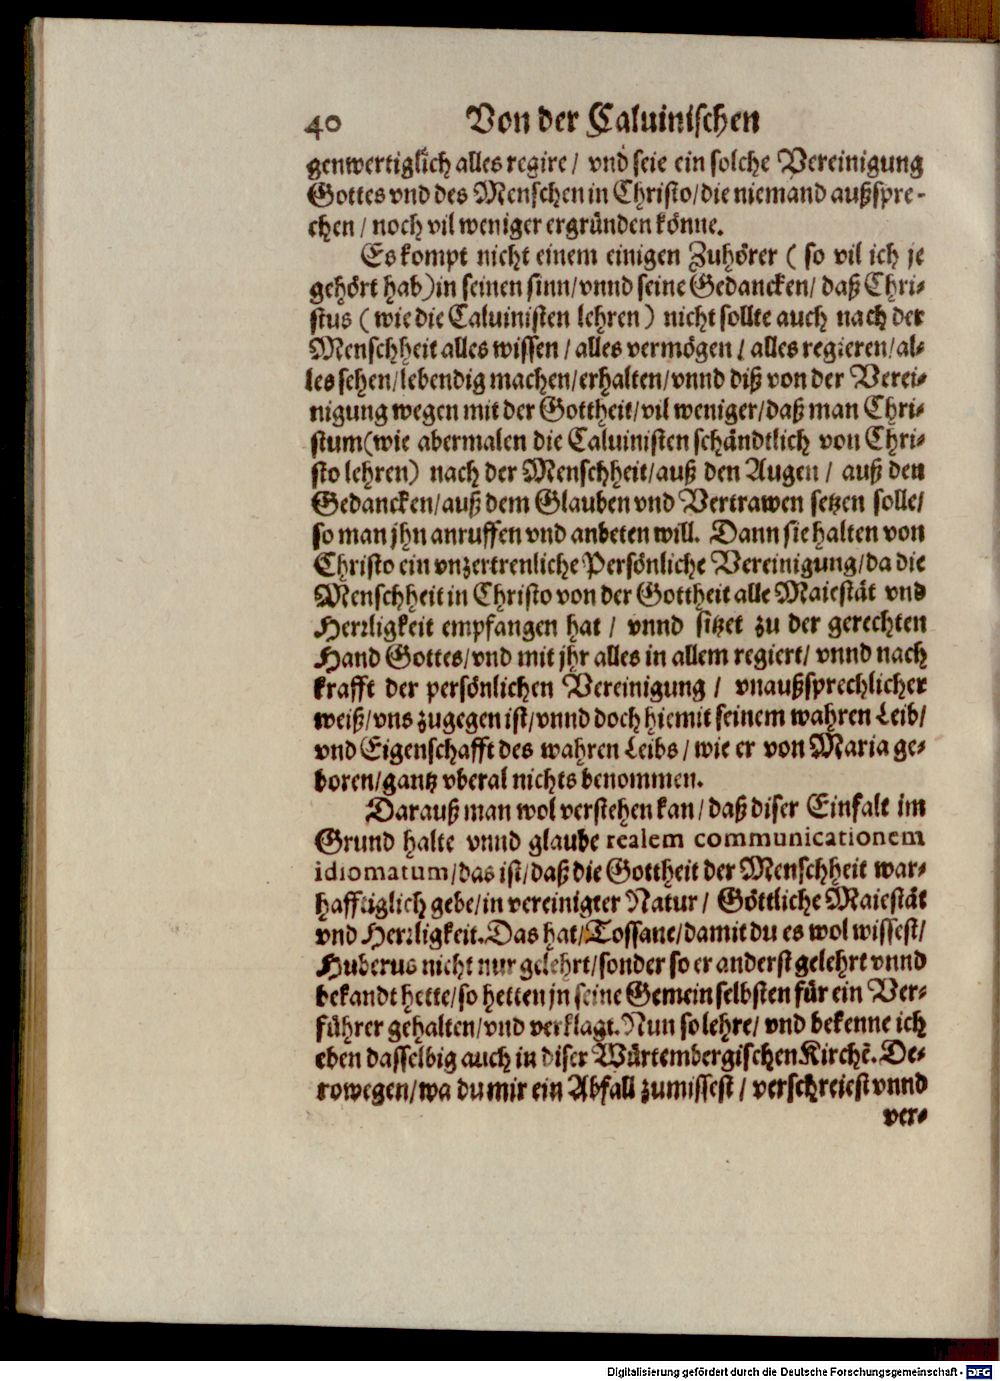 40 Von der Caluinischen
genwertiglich alles regire / vnd seie ein solche Vereinigung
Gottes vnd des Menschen in Christo/die niemand außspre-
chen / noch vil weniger ergründen könne.
Es kompt nicht einem einigen Zuhörer ( so vil ich je
gehört hab)in seinen sinn/vnnd seine Gedancken/ daß Chri-
stus ( wie die Caluinisten lehren ) nicht sollte auch nach der
Menschheit alles wissen / alles vermögen / alles regieren/al-
les sehen/lebendig machen/erhalten/vnnd diß von der Verei-
nigung wegen mit der Gottheit/vil weniger/daß man Chri-
stum(wie abermalen die Caluinisten schändtlich von Chri-
sto lehren) nach der Menschheit/auß den Augen / auß den
Gedancken/auß dem Glauben vnd Vertrawen setzen solle/
so man jhn anruffen vnd anbeten will. Dann sie halten von
Christo ein vnzertrenliche Persönliche Vereinigung/da die
Menschheit in Christo von der Gottheit alle Maiestät vnd
Herrligkeit empfangen hat / vnnd sitzet zu der gerechten
Hand Gottes/vnd mit jhr alles in allem regiert/ vnnd nach
krafft der persönlichen Vereinigung / vnaußsprechlicher
weiß/vns zugegen ist/vnnd doch hiemit seinem wahren Leib/
vnd Eigenschafft des wahren Leibs / wie er von Maria ge-
boren/gantz vberal nichts benommen.
Darauß man wol verstehen kan/ daß diser Einfalt im
Grund halte vnnd glaube realem communicationem
idiomatum/das ist/daß die Gottheit der Menschheit war-
hafftiglich gebe/in vereinigter Natur / Göttliche Maiestät
vnd Herrligkeit.Das hat/Tossane/damit du es wol wissest/
Huberus nicht nur gelehrt/sonder so er anderst gelehrt vnnd
bekandt hette/so hetten jn seine Gemein selbsten für ein Ver-
führer gehalten/vnd verklagt.Nun so lehre/ vnd bekenne ich
eben dasselbig auch in diser Würtembergischen Kirchẽ. De-
rowegen/wa du mir ein Abfall zumissest / verschreiest vnnd
ver-
Digitalisierung gefördert durch die Deutsche Forschungsgemeinschaft - DFG